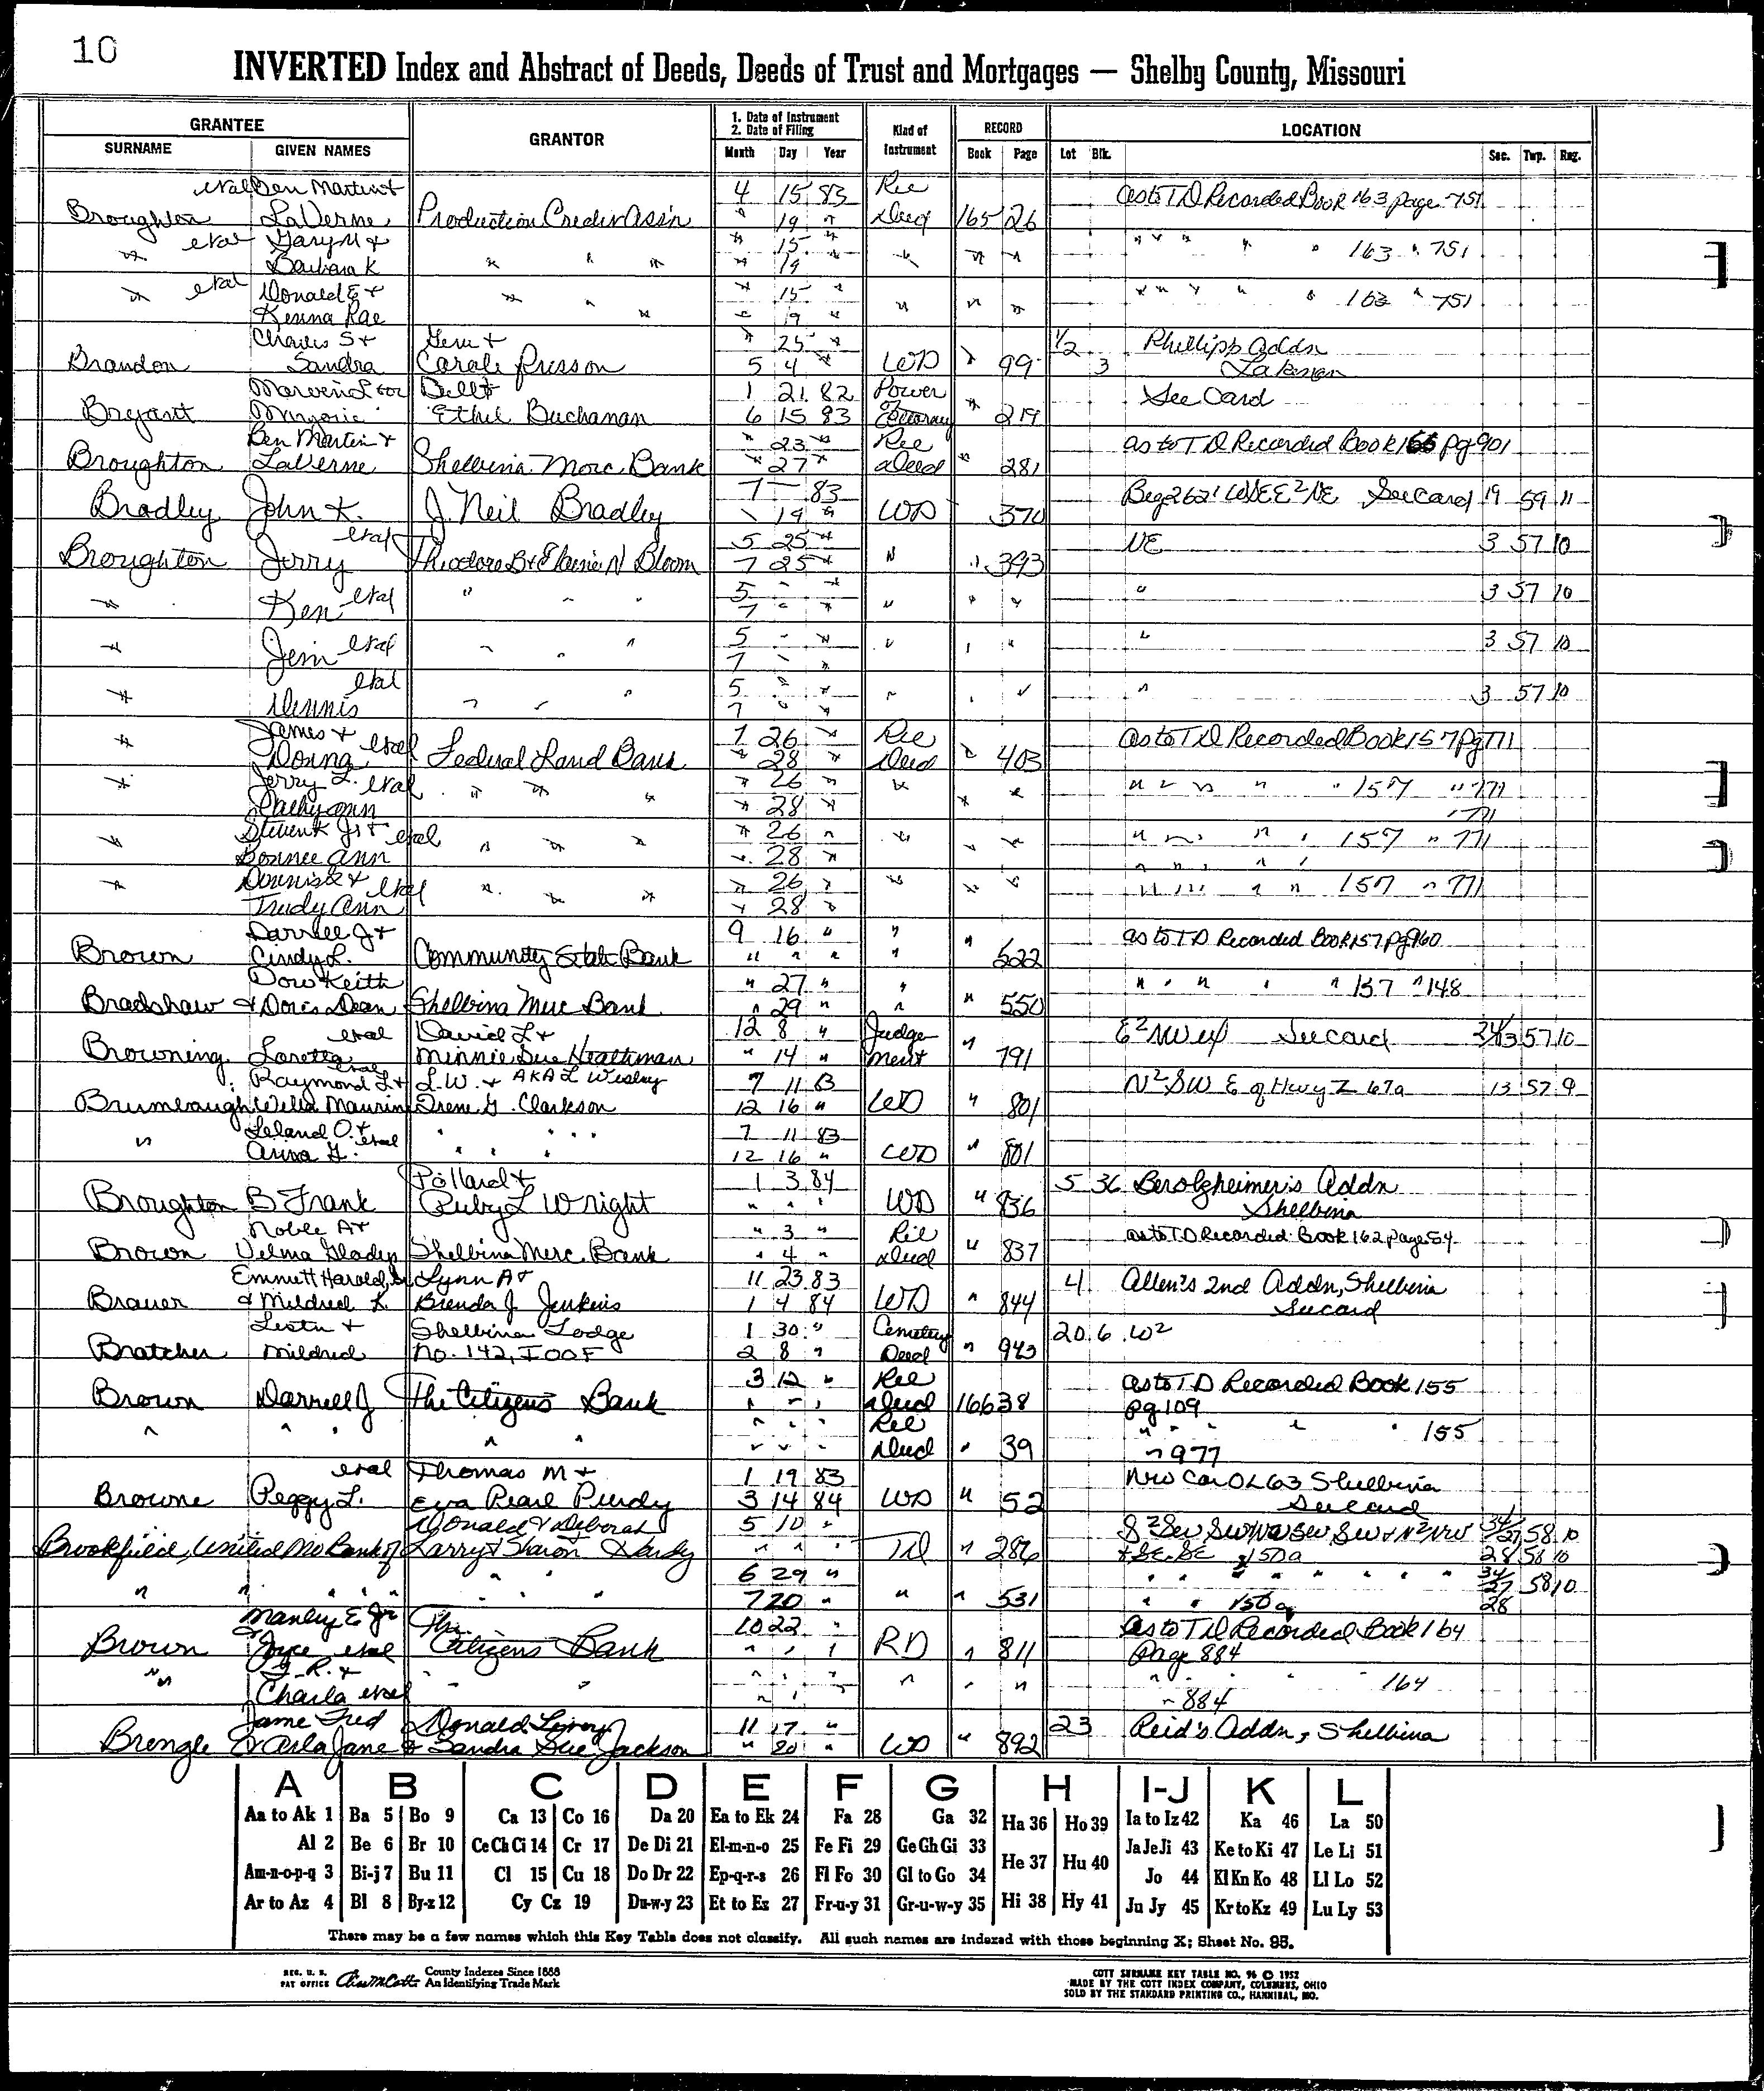 10
INVERTED Index and Abstract of Deeds, Deeds of Trust and Mortgages — Shelby County, Missouri
GRANTEE GRANTOR 1. Date of Instrument 2. Date of Filing Kind of Instrument RECORD LOCATION
SURNAME GIVEN NAMES Month Day Year Book Page Lot Blk. Sec. Twp. Rng.
etal Ben Martin & 4 15 83 Rel as to TD Recorded Book 163 page 751
Broughton LaVerne Production Credit Ass'n " 19 " Deed 165 26
" etal Gary M & " 15 " " " " " " 163 " 751
Barbara K " " " " 19 " " "
" etal Donald E & " 15 " " " " " " 163 " 751
Kenna Rae " " " " 19 " " " "
Charles S & " 25 " 1/2 Phillips Addn
Brandon Sandra Carole 5 4 " WD " 99 3
Dell & 1 21 82 Power of See Card
Bryant Marjorie Ethel Buchanan 6 15 83 Attorney " 219
Ben Martin & " 23 " Rel as to TD Recorded Book 166 pg 901
Broughton LaVerne Shelbina Merc. Bank " 27 " Deed " 281
7 — 83 See Card 19 59 11
Bradley John K. J. Neil Bradley " 19 " WD 370
etal 5 25 " NE 3 57 10
Broughton Jerry Theodore B & Elaine N Bloom 7 25 " " " 393
" Ken etal " " " 5 " " " " " " 3 57 10
7 " "
" Jim etal " " " 5 " " " " " " 3 57 10
7 " "
" etal 5 " " " 3 57 10
Dennis " " " 7 " " " " "
" James & 7 26 " Rel as to TD Recorded Book 157 pg 771
etal Federal Land Bank " 28 " Deed " 403
" Jerry L. etal " " " " 26 " " " " " " " 157 " 771
Cathy Ann " 28 " " " " 771
" Steven K Jr & etal " " " " 26 " " " " " " " " 157 " 771
Bonnee Ann " 28 " " " " "
" Dennis & etal " " " " 26 " " " " " " " " 157 " 771
Trudy Ann " 28 "
Darrell J & 9 16 " " as to TD Recorded Book 157 pg 960
Brown Cindy L. Community State Bank " " " " " 522
Dow Keith " 27 " " " " " " " 157 " 148
Bradshaw & Doris Dean Shelbina Merc Bank " 29 " " " 550
etal David L & 12 8 " Judge E² NW See card 57 10
Browning Loretta Minnie Sue Heathman " 14 " ment " 791
Raymond L & etal L.W. & AKA L Wesley 7 11 83 N² SW E of Hwy Z 67a 13 57 9
Brumbaugh Irene G. Clarkson 12 16 " WD " 801
" Leland O. & etal " " " " 7 11 83
Anna G. " " " 12 16 " WD " 801
Pollard & 1 3 84 5 36 Berolzheimer's Addn
Broughton B Frank Ruby L Wright " " " WD " 836 Shelbina
Noble A & " 3 " Rel as to T.D Recorded Book 162 page 54
Brown Velma Gladys Shelbina Merc. Bank " 4 " Deed " 837
Emmett Harold, Lynn A & 11 23 83 4 Allen's 2nd Addn, Shelbina
Brauer & Mildred L Brenda J. Jenkins 1 4 84 WD " 844 See card
Lester & Shelbina Lodge 1 30 " Cemetery 20 6 W²
Bratcher Mildred No. 142, IOOF 2 8 " Deed " 943
3 12 " Rel as to TD Recorded Book 155
Brown Darrell J The Citizens Bank " " " Deed 166 38 pg 109
" " " " " " " " Rel " " " " 155
" " " Deed " 39 " 977
etal Thomas M & 1 19 83 NW Cor OL 63 Shelbina
Browne Peggy L. Eva Pearl Purdy 3 14 84 WD " 52 See card
Donald & Deborah 5 10 " 34/27 58 10
Brookfield, United Mo Bank of Larry & Sharon Hardy " " " TD " 286 & SE SE 150a 28 58 10
" " " " " " " " 6 29 " " " " " " " " 34/27 58 10
7 20 " " " 531 " " 150a 28
Manley E Jr The 10 22 " as to TD Recorded Book 164
Brown & Joyce etal Citizens Bank " " " RD " 811 Page 884
" J.R. & " " " " " " " " " " " " 164
Charla etal " " " 884
Donald Leroy 11 17 " 23 Reid's Addn, Shelbina
Brengle & Arla Jane & Sandra Sue Jackson " 20 " WD " 892
A B C D E F G H I-J K L
Aa to Ak 1 Ba 5 Bo 9 Ca 13 Co 16 Da 20 Ea to Ek 24 Fa 28 Ga 32 Ha 36 Ho 39 Ia to Iz 42 Ka 46 La 50
Al 2 Be 6 Br 10 Ce Ch Ci 14 Cr 17 De Di 21 El-m-n-o 25 Fe Fi 29 Ge Gh Gi 33 He 37 Hu 40 Ja Je Ji 43 Ke to Ki 47 Le Li 51
Am-n-o-p-q 3 Bi-j 7 Bu 11 Cl 15 Cu 18 Do Dr 22 Ep-q-r-s 26 Fl Fo 30 Gl to Go 34 Jo 44 Kl Kn Ko 48 Ll Lo 52
Ar to Az 4 Bl 8 By-z 12 Cy Cz 19 Du-w-y 23 Et to Ez 27 Fr-u-y 31 Gr-u-w-y 35 Hi 38 Hy 41 Ju Jy 45 Kr to Kz 49 Lu Ly 53
There may be a few names which this Key Table does not classify. All such names are indexed with those beginning X; Sheet No. 95.
REG. U. S. PAT OFFICE County Indexes Since 1888 An Identifying Trade Mark
COTT SURNAME KEY TABLE NO. 96 © 1952
MADE BY THE COTT INDEX COMPANY, COLUMBUS, OHIO
SOLD BY THE STANDARD PRINTING CO., HANNIBAL, MO.